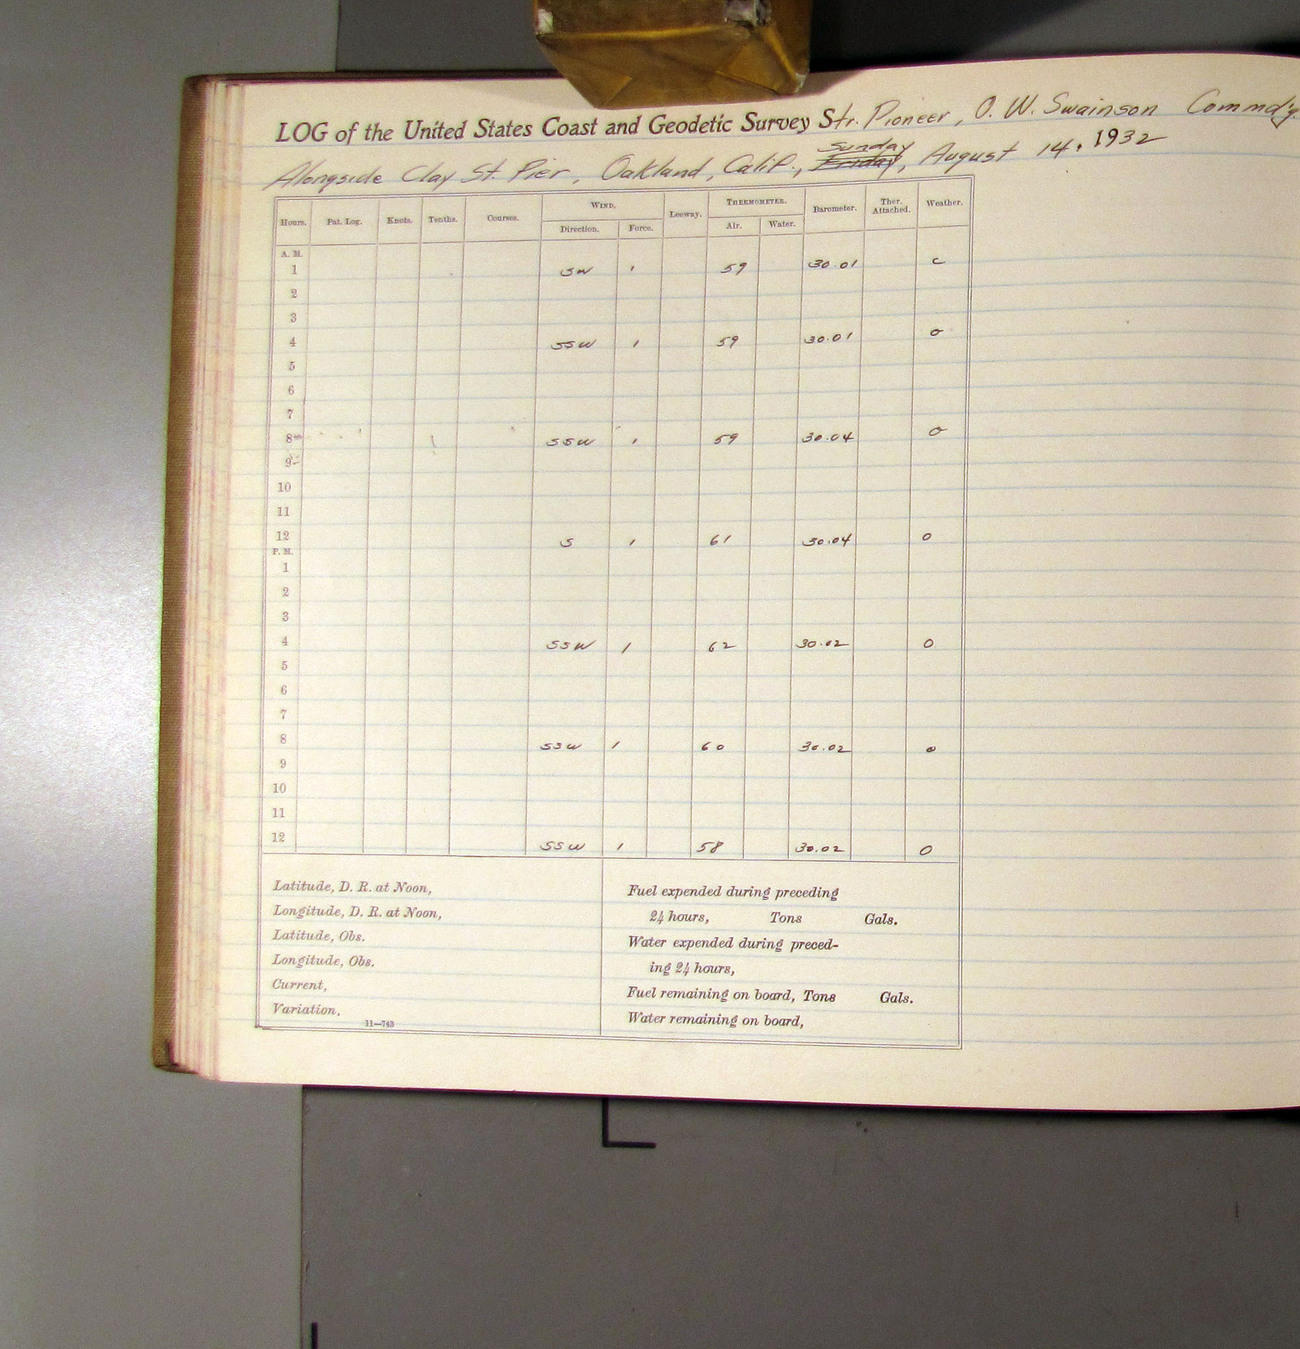 LOG of the United States Coast and Geodetic Survey Str. Pioneer, O. W. Swainson Commd'g.
Sunday
Alongside Clay St. Pier, Oakland, Calif., Friday, August 14, 1932
Hours. Pat. Log. Knots. Tenths. Courses. WIND. Leeway. THERMOMETER. Barometer. Ther. Attached. Weather.
Direction. Force. Air. Water.
A. M.
1 SW 1 59 30.01 c
2
3
4 SSW 1 59 30.01 o
5
6
7
8 SSW 1 59 30.04 o
9
10
11
12 S 1 61 30.04 o
P. M.
1
2
3
4 SSW 1 62 30.02 o
5
6
7
8 SSW 1 60 30.02 o
9
10
11
12 SSW 1 58 30.02 o
Latitude, D. R. at Noon,
Longitude, D. R. at Noon,
Latitude, Obs.
Longitude, Obs.
Current,
Variation,
11—743
Fuel expended during preceding
24 hours, Tons Gals.
Water expended during preced-
ing 24 hours,
Fuel remaining on board, Tons Gals.
Water remaining on board,